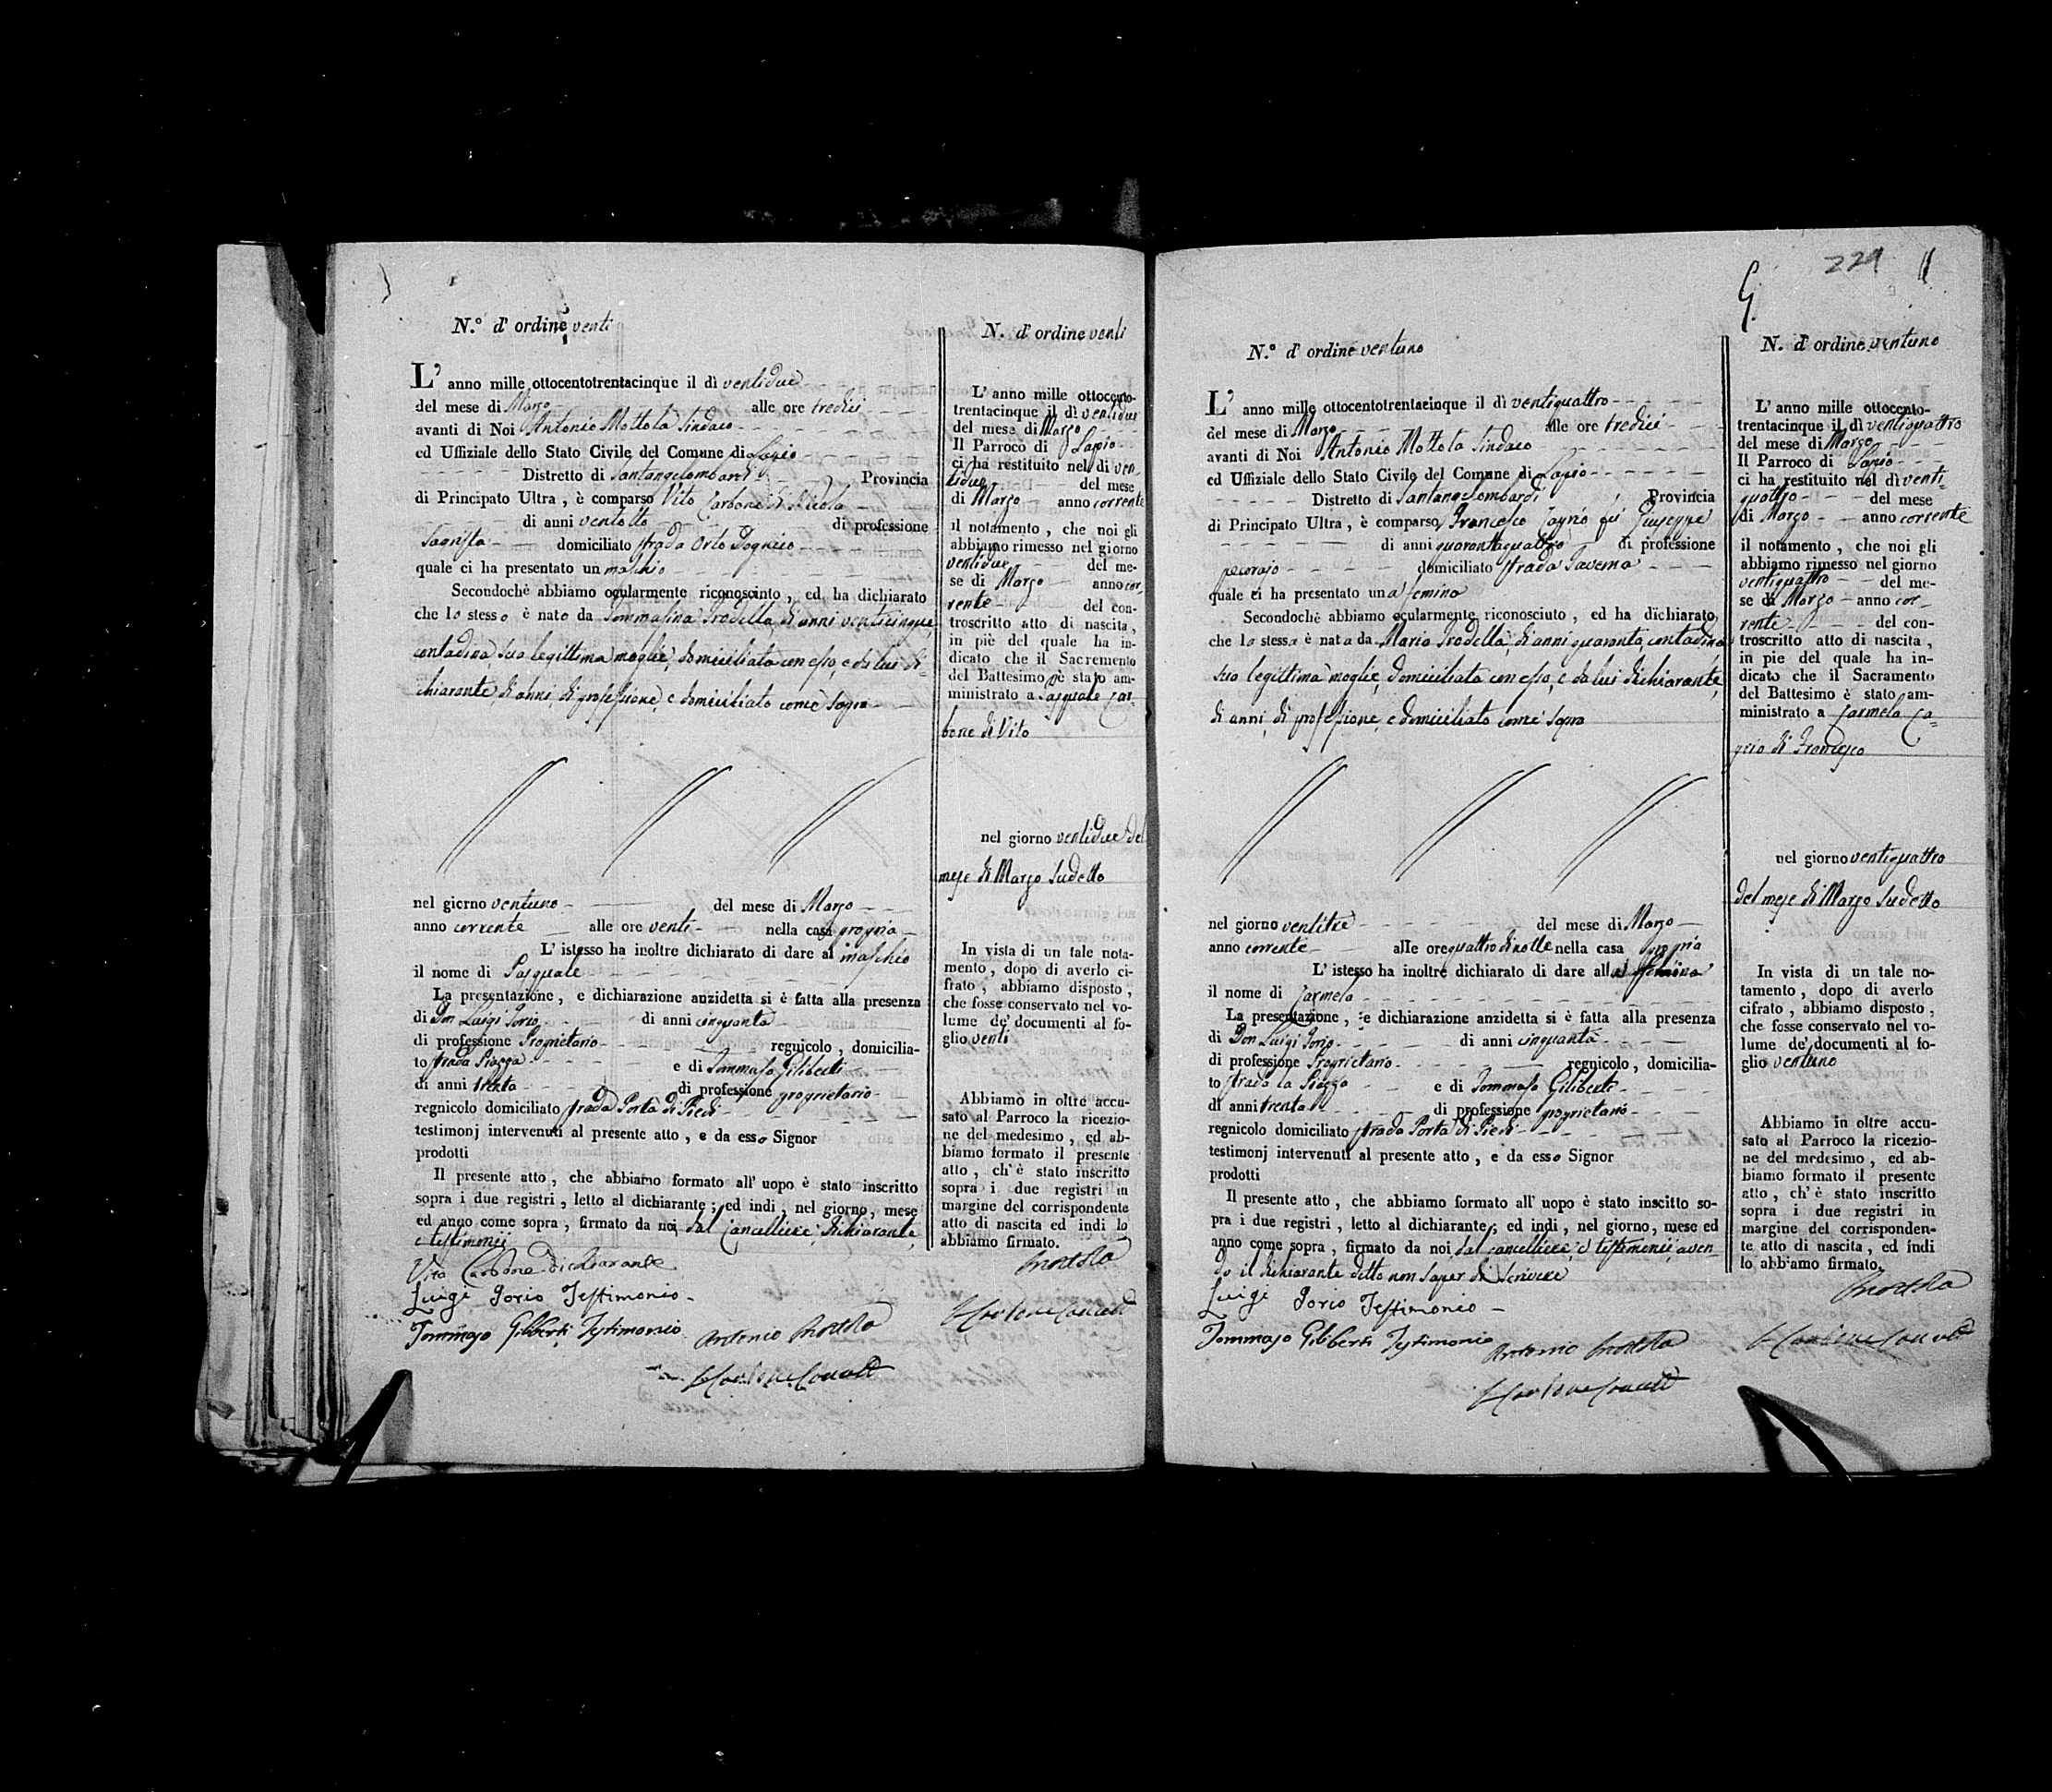 N.º d' ordine venti
L' anno mille ottocentotrentacinque il dì ventidue
del mese di Marzo alle ore tredici
avanti di Noi Antonio Mottola Sindaco
ed Uffiziale dello Stato Civile del Comune di Lapio
Distretto di Santangelombardi Provincia
di Principato Ultra, è comparso Vito Carbone di Nicola
di anni ventotto di professione
Sagrista domiciliato strada Orto
quale ci ha presentato un maschio
Secondochè abbiamo ocularmente riconosciuto, ed ha dichiarato
che lo stesso è nato da Tommasina Trodella, di anni venticinque,
contadina sua legittima moglie, domiciliata con esso, e da lui di=
chiarante di anni, di professione, e domiciliato come sopra
nel giorno ventuno del mese di Marzo
anno corrente alle ore venti nella casa propria
L' istesso ha inoltre dichiarato di dare al maschio
il nome di Pasquale
La presentazione, e dichiarazione anzidetta si è fatta alla presenza
di Don Luigi Iorio di anni cinquanta
di professione Proprietario regnicolo, domicilia-
to strada Piazza e di Tommaso Giliberti
di anni trenta di professione proprietario
regnicolo domiciliato strada Porta di Piedi
testimonj intervenuti al presente atto, e da esso Signor
prodotti
Il presente atto, che abbiamo formato all' uopo è stato inscritto
sopra i due registri, letto al dichiarante; ed indi, nel giorno, mese
ed anno come sopra, firmato da noi, dal Cancelliere, dichiarante,
e testimonii
Vito Carbone dichiarante
Luigi Iorio Testimonio
Tommaso Giliberti Testimonio Antonio Mottola
N. d' ordine venti
L' anno mille ottocento-
trentacinque il dì ventidue
del mese di Marzo
Il Parroco di Lapio
ci ha restituito nel dì ven-
tidue del mese
di Marzo anno corrente
il notamento, che noi gli
abbiamo rimesso nel giorno
ventidue del me-
se di Marzo anno cor-
rente del con-
troscritto atto di nascita,
in piè del quale ha in-
dicato che il Sacremento
del Battesimo è stato am-
ministrato a Pasquale Car-
bone di Vito
nel giorno ventidue del
mese di Marzo sudetto
In vista di un tale nota-
mento, dopo di averlo ci-
frato, abbiamo disposto,
che fosse conservato nel vo-
lume de' documenti al fo-
glio venti
Abbiamo in oltre accu-
sato al Parroco la ricezio-
ne del medesimo, ed ab-
biamo formato il presente
atto, ch' è stato inscritto
sopra i due registri in
margine del corrispondente
atto di nascita ed indi lo
abbiamo firmato.
Mottola
229
N.º d' ordine ventuno
L' anno mille ottocentotrentacinque il dì ventiquattro
del mese di Marzo alle ore tredici
avanti di Noi Antonio Mottola Sindaco
ed Uffiziale dello Stato Civile del Comune di Lapio
Distretto di Santangelombardi Provincia
di Principato Ultra, è comparso Francesco Cagno fu Giuseppe
di anni quarantaquattro di professione
pecorajo domiciliato strada Taverna
quale ci ha presentato una femina
Secondochè abbiamo ocularmente riconosciuto, ed ha dichiarato
che la stessa è nata da Maria Trodella, di anni quaranta, contadina
sua legittima moglie, domiciliata con esso, e da lui dichiarante,
di anni, di professione, e domiciliato come sopra
nel giorno ventitre del mese di Marzo
anno corrente alle ore quattro di notte nella casa propria
L' istesso ha inoltre dichiarato di dare alla femina
il nome di Carmela
La presentazione, e dichiarazione anzidetta si è fatta alla presenza
di Don Luigi Iorio di anni cinquanta
di professione Proprietario regnicolo, domicilia-
to strada la Piazza e di Tommaso Giliberti
di anni trenta di professione proprietario
regnicolo domiciliato strada Porta di Piedi
testimonj intervenuti al presente atto, e da esso Signor
prodotti
Il presente atto, che abbiamo formato all' uopo è stato inscitto so-
pra i due registri, letto al dichiarante; ed indi, nel giorno, mese ed
anno come sopra, firmato da noi, dal cancelliere, e testimonii, aven
do il dichiarante detto non saper di scrivere
Luigi Iorio Testimonio
Tommaso Giliberti Testimonio Antonio Mottola
N. d' ordine ventuno
L' anno mille ottocento-
trentacinque il dì ventiquattro
del mese di Marzo
Il Parroco di Lapio
ci ha restituito nel dì venti-
quattro del mese
di Marzo anno corrente
il notamento, che noi gli
abbiamo rimesso nel giorno
ventiquattro del me-
se di Marzo anno cor-
rente del con-
troscritto atto di nascita,
in pie del quale ha in-
dicato che il Sacramento
del Battesimo è stato am-
ministrato a Carmela Ca=
gno di Francesco
nel giorno ventiquattro
del mese di Marzo sudetto
In vista di un tale no-
tamento, dopo di averlo
cifrato, abbiamo disposto,
che fosse conservato nel vo-
lume de' documenti al fo-
glio ventuno
Abbiamo in oltre accu-
sato al Parroco la ricezio-
ne del medesimo, ed ab-
biamo formato il presente
atto, ch' è stato inscritto
sopra i due registri in
margine del corrisponden-
te atto di nascita, ed indi
lo abbiamo firmato.
Mottola